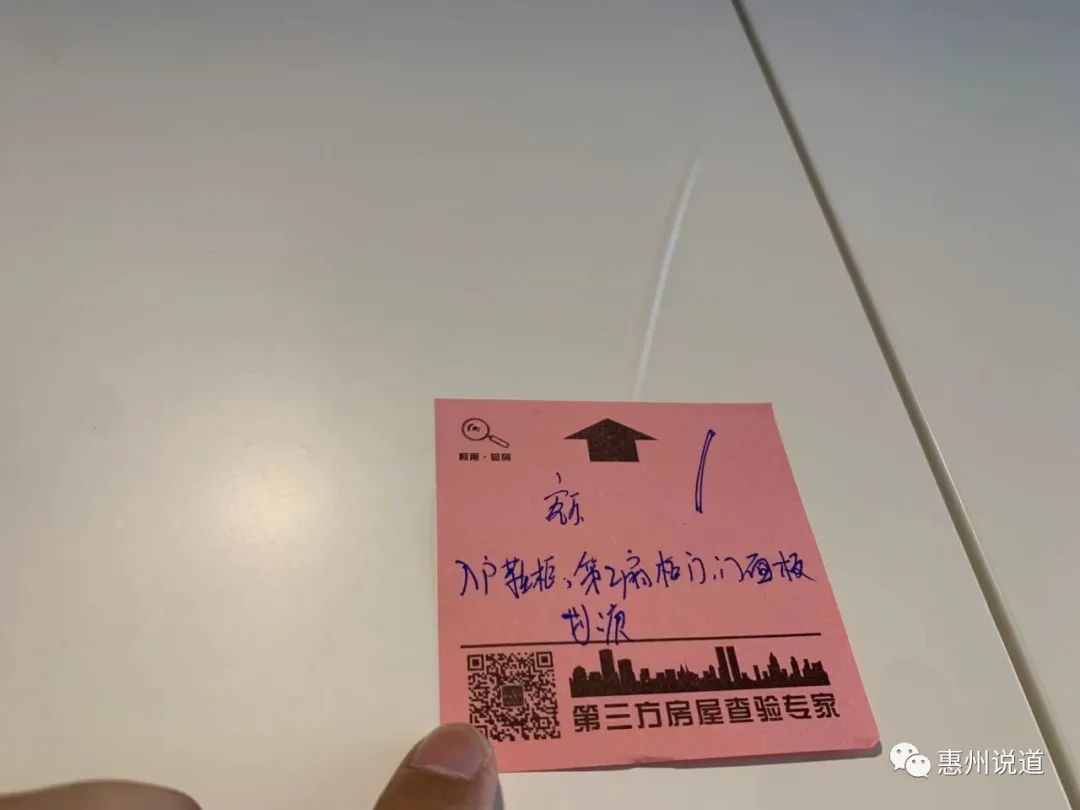 柯南·验房
客厅
1
入户鞋柜、第2扇柜门、门面板
划痕
第三方房屋查验专家
惠州说道